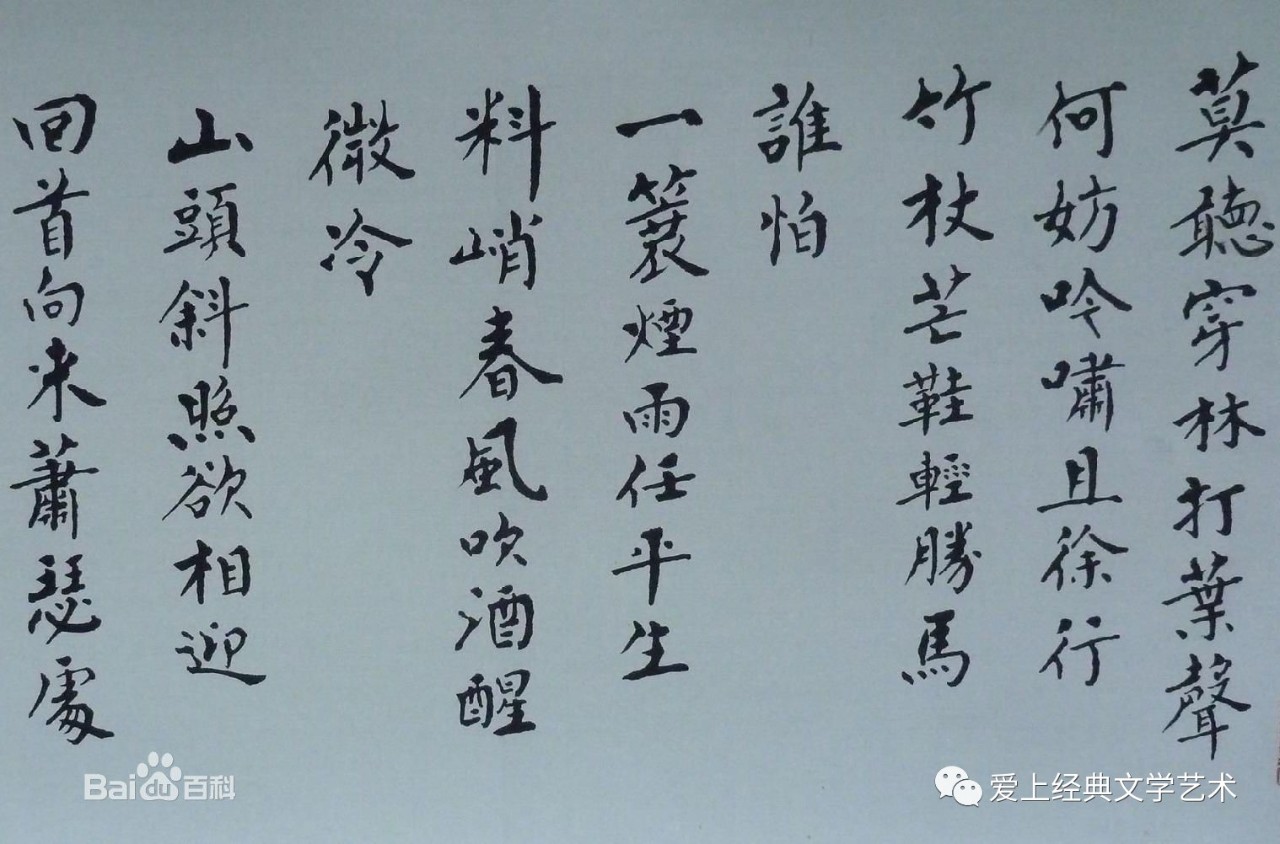 莫聽穿林打葉聲
何妨吟嘯且徐行
竹杖芒鞋輕勝馬
誰怕
一蓑煙雨任平生
料峭春風吹酒醒
微冷
山頭斜照欲相迎
回首向来蕭瑟處
Bai du 百科
爱上经典文学艺术